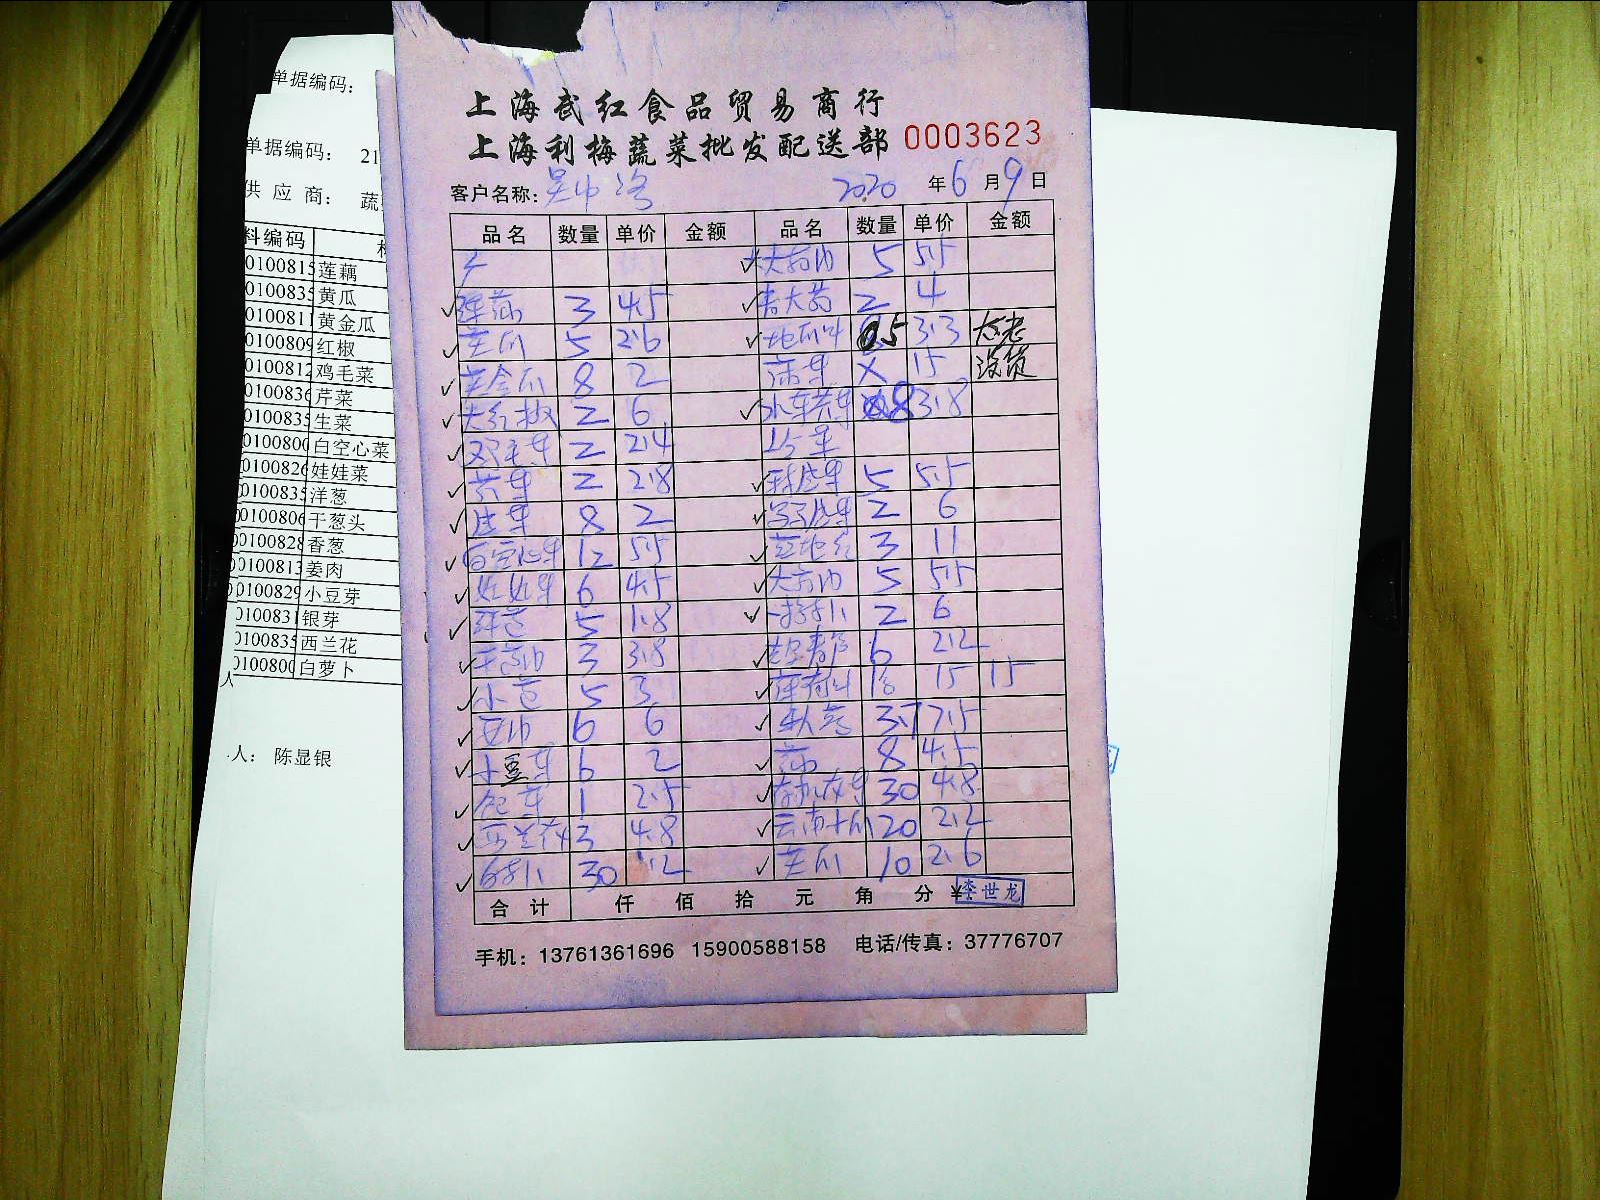 单据编码：
单据编码： 21
供应商： 蔬
料编码
0100815 莲藕
0100835 黄瓜
0100811 黄金瓜
0100809 红椒
0100812 鸡毛菜
0100836 芹菜
0100835 生菜
0100800 白空心菜
0100826 娃娃菜
0100835 洋葱
0100806 干葱头
0100828 香葱
0100813 姜肉
0100829 小豆芽
0100831 银芽
0100835 西兰花
0100800 白萝卜
人
人： 陈显银
上海武红食品贸易商行
上海利梅蔬菜批发配送部 0003623
客户名称：吴中路 2020 年 6 月 9 日
品名 数量 单价 金额 品名 数量 单价 金额
5 5.5
3 4.5 2 4
黄瓜 5 2.6 地瓜叶 0.5 3.3 太老
黄金瓜 8 2 × 15 没货
大红椒 2 6 8 3.8
鸡毛菜 2 2.4
芹菜 2 2.8 5 5.5
生菜 8 2 2 6
白空心菜 12 5.5 3 11
娃娃菜 6 4.5 5 5.5
洋葱 5 1.8 2 6
3 3.8 6 2.2
小葱 5 3 15 15
6 6 3.7 7.5
小豆芽 6 2 8 4.5
银芽 1 2.5 30 4.8
西兰花 3 4.8 云南小瓜 20 2.2
白萝卜 30 1.2 黄瓜 10 2.6
合计 仟 佰 拾 元 角 分 ¥ 李世龙
手机：13761361696 15900588158 电话/传真：37776707